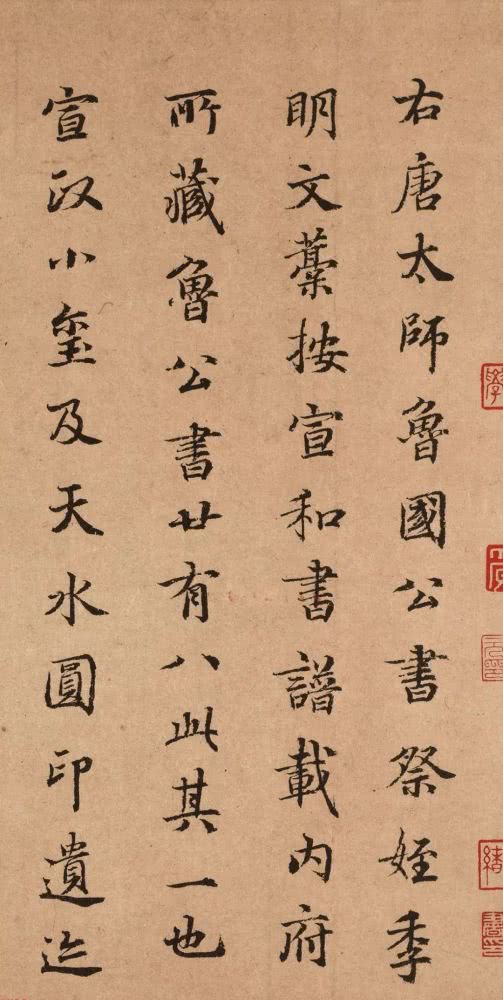 右唐太師魯國公書祭姪季
明文藁按宣和書譜載内府
所藏魯公書廿有八此其一也
宣政小璽及天水圓印遺迹